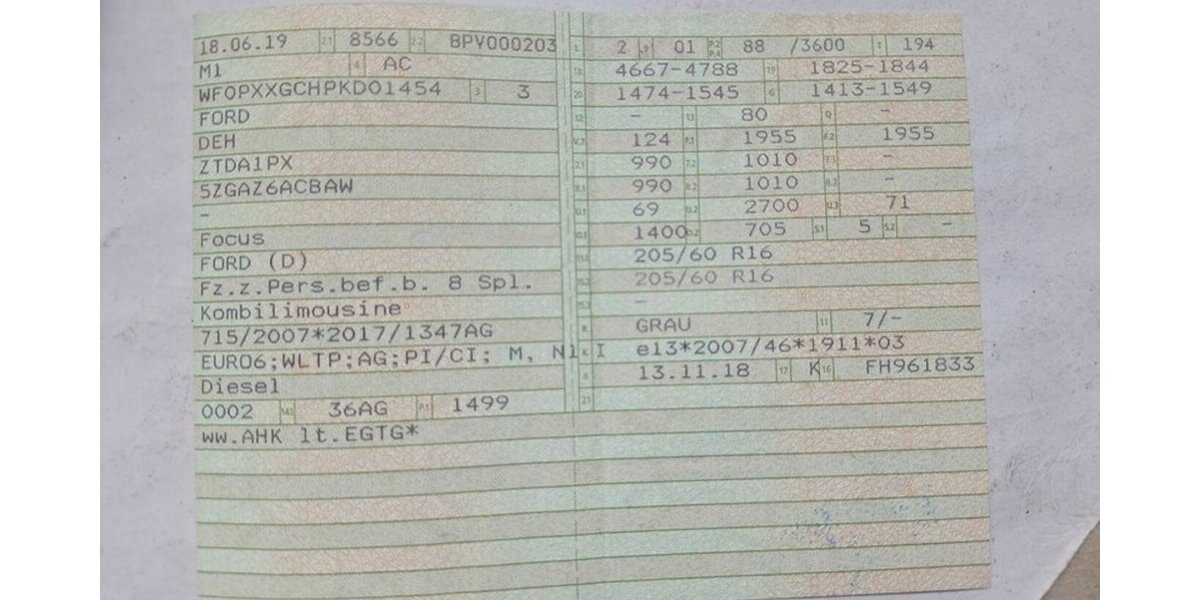 18.06.19 2.1 8566 2.2 BPV000203 L 2 9 01 P.2 P.4 88 /3600 T 194
M1 4 AC 18 4667-4788 19 1825-1844
WF0PXXGCHPKD01454 3 3 20 1474-1545 G 1413-1549
FORD 12 - 13 80 Q -
DEH V.7 124 F.1 1955 F.2 1955
ZTDA1PX 7.1 990 7.2 1010 7.3 -
5ZGAZ6ACBAW 8.1 990 8.2 1010 8.3 -
- U.1 69 U.2 2700 U.3 71
Focus O.1 1400 O.2 705 S.1 5 S.2 -
FORD (D) 15.1 205/60 R16
Fz.z.Pers.bef.b. 8 Spl. 15.2 205/60 R16
Kombilimousine 15.3 -
715/2007*2017/1347AG R GRAU 11 7/-
EURO6;WLTP;AG;PI/CI; M, N1 I K e13*2007/46*1911*03
Diesel 6 13.11.18 17 K 16 FH961833
0002 14.1 36AG P.1 1499 21
ww.AHK lt.EGTG*